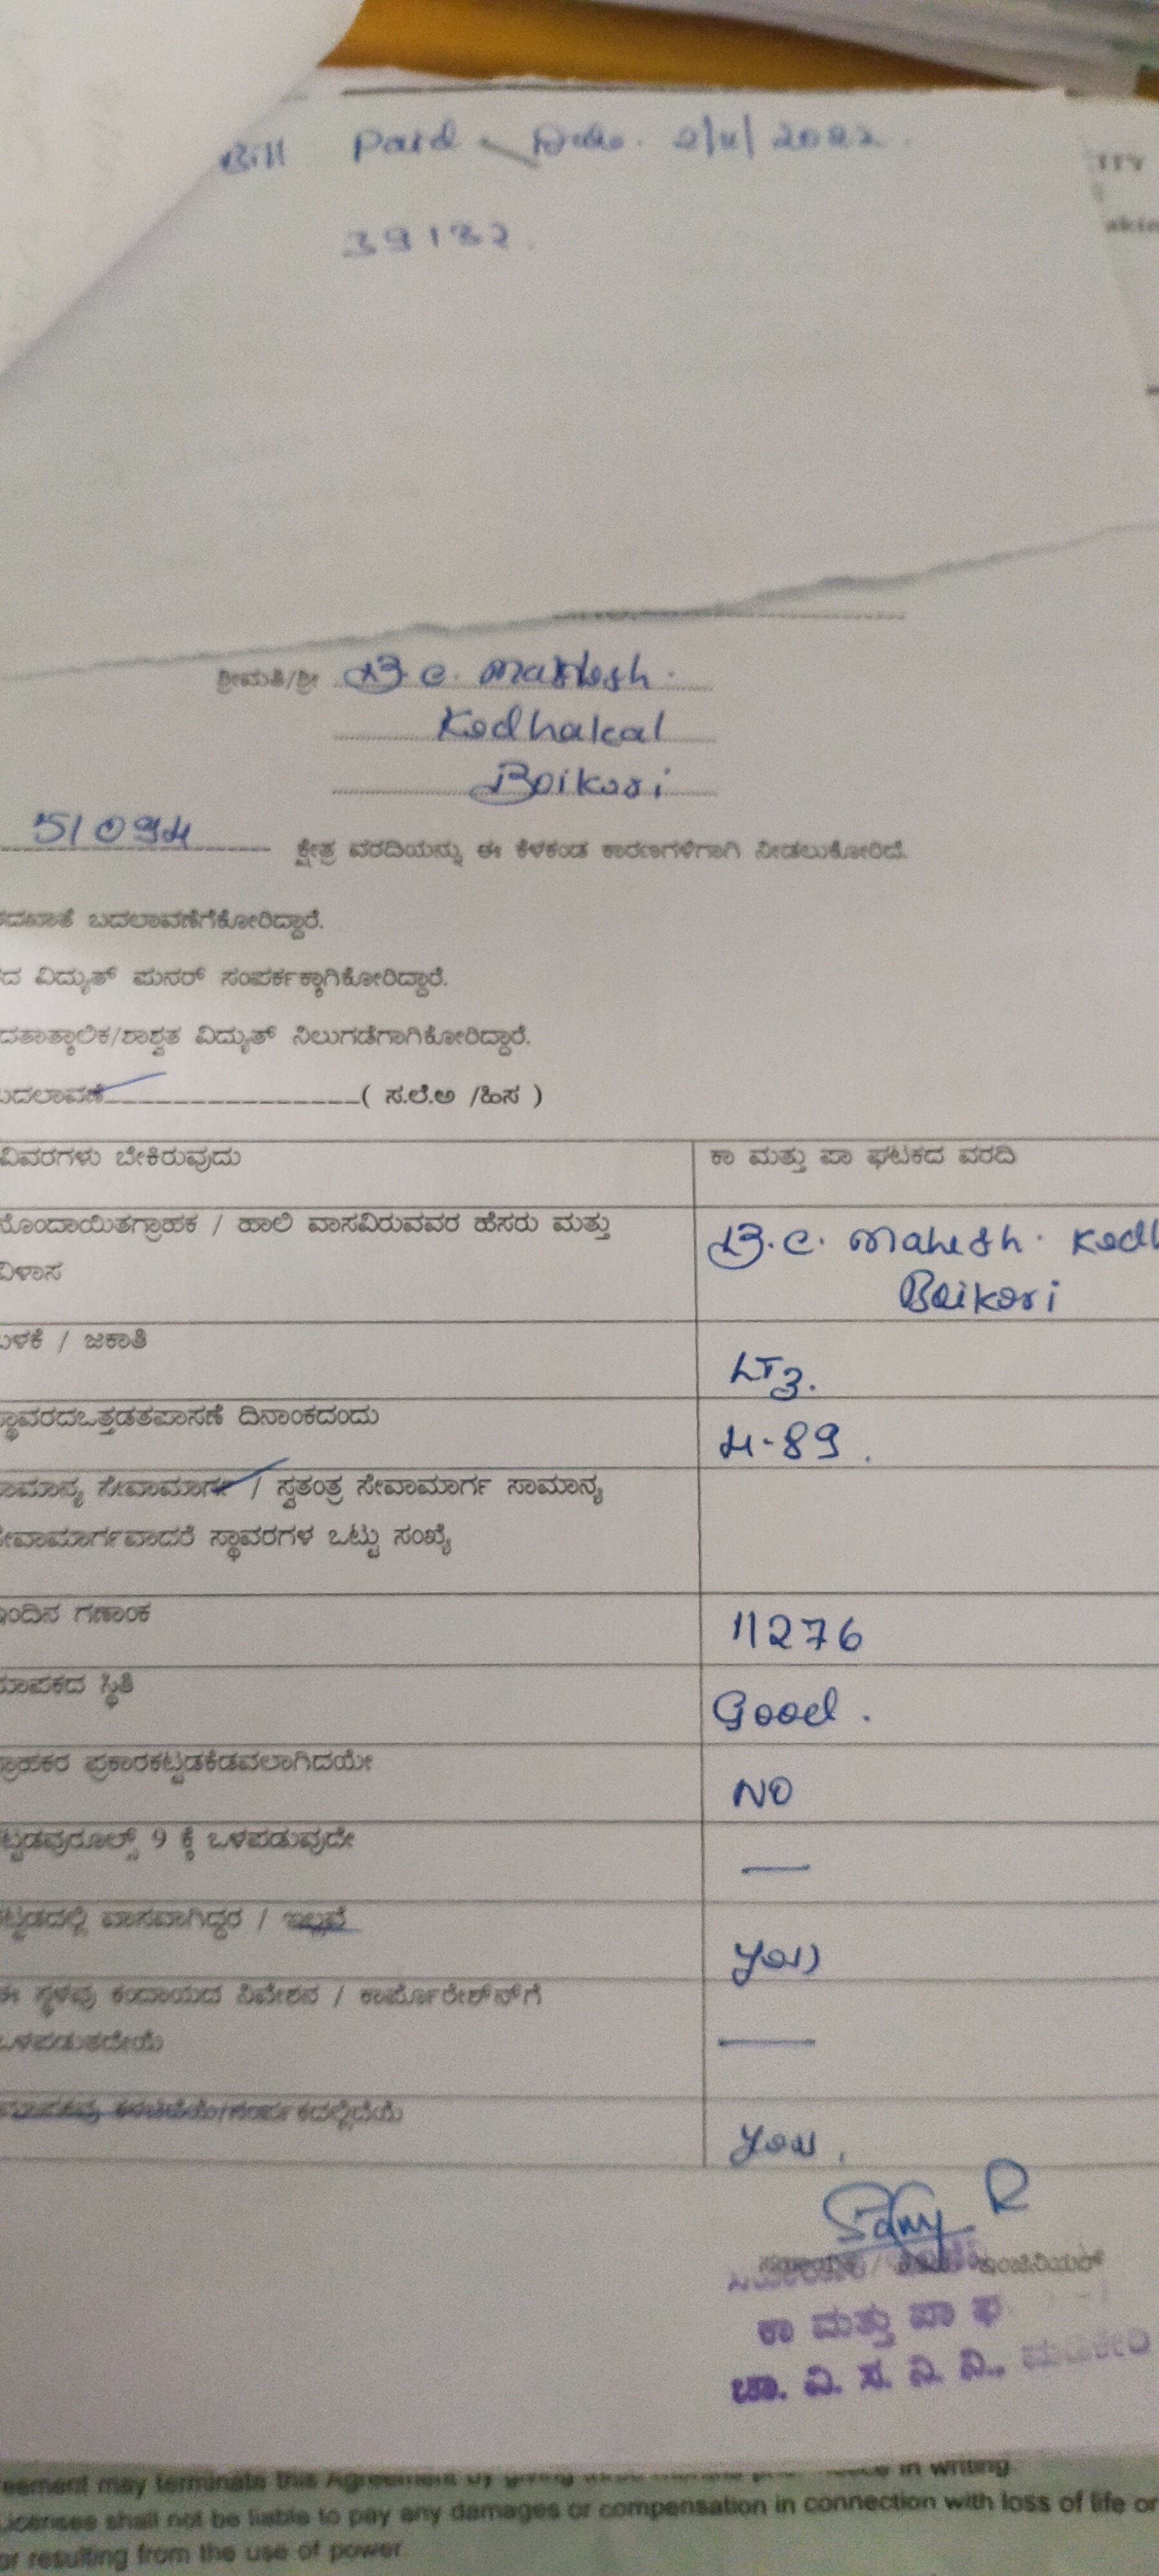 Bill Paid Date. 2/11/2022.
39132.
ಶ್ರೀಮತಿ/ಶ್ರೀ B.C. Mahesh.
Kodhakal
Boikori
51094 ಕ್ಷೇತ್ರ ವರದಿಯನ್ನು ಈ ಕೆಳಕಂಡ ಕಾರಣಗಳಿಗಾಗಿ ನೀಡಲುಕೋರಿದೆ.
ಬದಲಾವಣೆಗೆಕೋರಿದ್ದಾರೆ.
ದ ವಿದ್ಯುತ್ ಪುನರ್ ಸಂಪರ್ಕಕ್ಕಾಗಿಕೋರಿದ್ದಾರೆ.
ದತಾತ್ಕಾಲಿಕ/ಶಾಶ್ವತ ವಿದ್ಯುತ್ ನಿಲುಗಡೆಗಾಗಿಕೋರಿದ್ದಾರೆ.
ಬದಲಾವಣೆ ( ಸ.ಲೆ.ಅ /ಹಿಸ )
ವಿವರಗಳು ಬೇಕಿರುವುದು ಕಾ ಮತ್ತು ಪಾ ಘಟಕದ ವರದಿ
ನೊಂದಾಯಿತಗ್ರಾಹಕ / ಹಾಲಿ ವಾಸವಿರುವವರ ಹೆಸರು ಮತ್ತು
ವಿಳಾಸ
B.C. Mahesh. Kodh
Boikori
ಬಳಕೆ / ಜಕಾತಿ
LT3.
ಸ್ಥಾವರದಒತ್ತಡತಪಾಸಣೆ ದಿನಾಂಕದಂದು
4-89.
ಸಾಮಾನ್ಯ ಸೇವಾಮಾರ್ಗ / ಸ್ವತಂತ್ರ ಸೇವಾಮಾರ್ಗ ಸಾಮಾನ್ಯ
ಸೇವಾಮಾರ್ಗವಾದರೆ ಸ್ಥಾವರಗಳ ಒಟ್ಟು ಸಂಖ್ಯೆ
ಇಂದಿನ ಗಣಾಂಕ
11276
ಮಾಪಕದ ಸ್ಥಿತಿ
Good.
ಗ್ರಾಹಕರ ಪ್ರಕಾರಕಟ್ಟಡಕೆಡವಲಾಗಿದಯೇ
NO
ಕಟ್ಟಡವುರೂಲ್ಸ್ 9 ಕ್ಕೆ ಒಳಪಡುವುದೇ
—
ಕಟ್ಟಡದಲ್ಲಿ ವಾಸವಾಗಿದ್ದರ / ಇಲ್ಲವೆ
yes
ಈ ಸ್ಥಳವು ಕಂದಾಯದ ನಿವೇಶನ / ಕಾರ್ಪೊರೇಶನ್‌ಗೆ
ಒಳಪಡುತದೇಯೆ
—
yes.
ಇಂಜಿನಿಯರ್
ಕಾ ಮತ್ತು ಪಾ ಘ
ಚಾ. ವಿ. ಸ. ನಿ. ನಿ., ಮಡಿಕೇರಿ
reement may terminate this Agreement by giving in writing
Licensee shall not be liable to pay any damages or compensation in connection with loss of life or
or resulting from the use of power